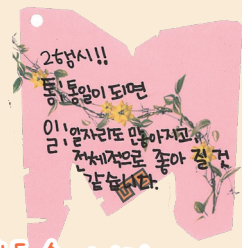 2행시!!
통:통일이 되면
일:일자리도 많아지고
전체적으로 좋아 질 것
같습니다.